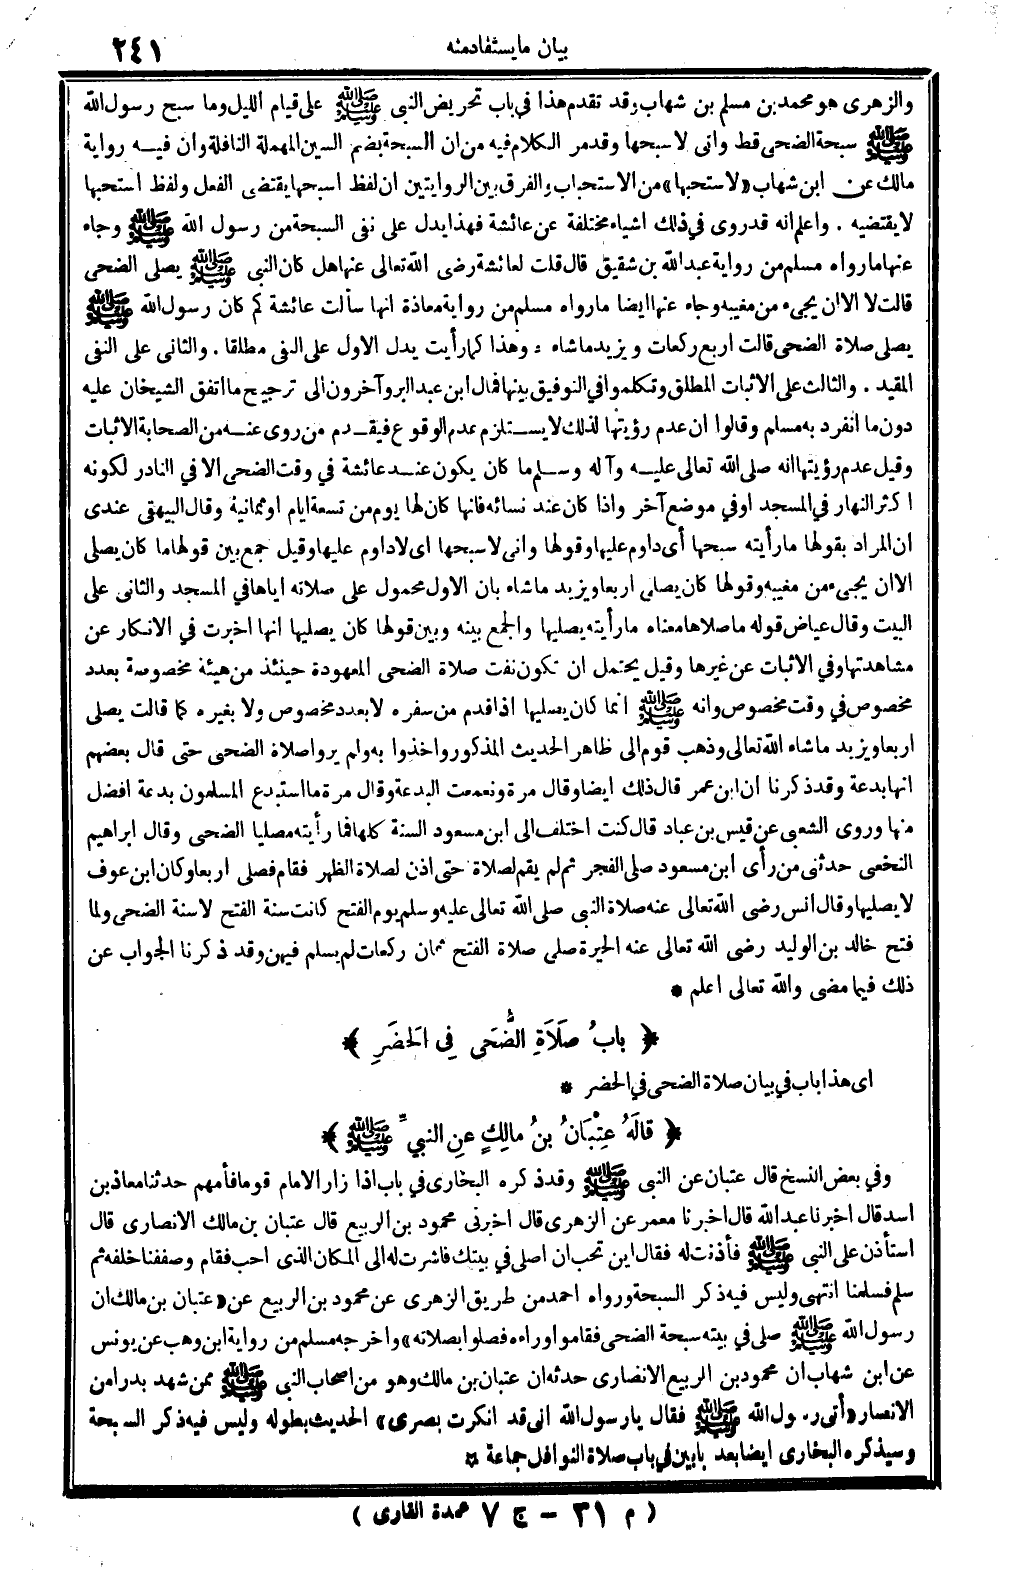 بيان مايستفادمنه
٢٤١
والزهرى هو محمد بن مسلم بن شهاب وقد تقدم هذا في باب تحريض النبى ﷺ على قيام الليل وما سبح رسول الله
ﷺ سبحة الضحى قط وانى لاسبحها وقد مر الكلام فيه من ان السبحة بضم السين المهملة النافلة وان فيه رواية
مالك عن ابن شهاب «لاستحبها» من الاستحباب والفرق بين الروايتين ان لفظ اسبحها يقتضى الفعل ولفظ استحبها
لا يقتضيه . واعلم انه قد روى في ذلك اشياء مختلفة عن عائشة فهذا يدل على نفى السبحة من رسول الله ﷺ وجاء
عنها ما رواه مسلم من رواية عبد الله بن شقيق قال قلت لعائشة رضى الله تعالى عنها هل كان النبى ﷺ يصلى الضحى
قالت لا الا ان يجىء من مغيبه وجاء عنها ايضا ما رواه مسلم من رواية معاذة انها سألت عائشة كم كان رسول الله ﷺ
يصلى صلاة الضحى قالت اربع ركعات ويزيد ماشاء : وهذا كما رأيت يدل الاول على النفى مطلقا . والثانى على النفى
المقيد . والثالث على الاثبات المطلق وتكلموا في التوفيق بينها فمال ابن عبد البر وآخرون الى ترجيح ما اتفق الشيخان عليه
دون ما انفرد به مسلم وقالوا ان عدم رؤيتها لذلك لا يستلزم عدم الوقوع فيقدم من روى عنه من الصحابة الاثبات
وقيل عدم رؤيتها انه صلى الله تعالى عليه وآله وسلم ما كان يكون عند عائشة في وقت الضحى الا في النادر لكونه
اكثر النهار في المسجد او في موضع آخر واذا كان عند نسائه فانها كان لها يوم من تسعة ايام او ثمانية وقال البيهقى عندى
ان المراد بقولها ما رأيته سبحها أى داوم عليها وقولها وانى لاسبحها اى لاداوم عليها وقيل جمع بين قولها ما كان يصلى
الا ان يجىء من مغيبه وقولها كان يصلى اربعا ويزيد ماشاء بان الاول محمول على صلاته اياها في المسجد والثانى على
البيت وقال عياض قوله ما صلاها معناه ما رأيته يصليها والجمع بينه وبين قولها كان يصليها انها اخبرت في الانكار عن
مشاهدتها وفي الاثبات عن غيرها وقيل يحتمل ان تكون نفت صلاة الضحى المعهودة حينئذ من هيئة مخصوصة بعدد
مخصوص في وقت مخصوص وانه ﷺ انما كان يصليها اذا قدم من سفره لا بعدد مخصوص ولا بغيره كما قالت يصلى
اربعا ويزيد ماشاء الله تعالى وذهب قوم الى ظاهر الحديث المذكور واخذوا به ولم يروا صلاة الضحى حتى قال بعضهم
انها بدعة وقد ذكرنا ان ابن عمر قال ذلك ايضا وقال مرة ونعمت البدعة وقال مرة ما استبدع المسلمون بدعة افضل
منها وروى الشعبى عن قيس بن عباد قال كنت اختلف الى ابن مسعود السنة كلها فما رأيته مصليا الضحى وقال ابراهيم
النخعى حدثنى من رأى ابن مسعود صلى الفجر ثم لم يقم لصلاة حتى اذن لصلاة الظهر فقام فصلى اربعا وكان ابن عوف
لا يصليها وقال انس رضى الله تعالى عنه صلاة النبى صلى الله تعالى عليه وسلم يوم الفتح كانت سنة الفتح لا سنة الضحى ولما
فتح خالد بن الوليد رضى الله تعالى عنه الحيرة صلى صلاة الفتح ثمان ركعات لم يسلم فيهن وقد ذكرنا الجواب عن
ذلك فيما مضى والله تعالى اعلم *
﴿ بابُ صَلَاةِ الضُّحَى فِى الحَضَرِ ﴾
اى هذا باب في بيان صلاة الضحى في الحضر *
﴿ قالَهُ عِتْبَانُ بنُ مالِكٍ عنِ النبيِّ ﷺ ﴾
وفي بعض النسخ قال عتبان عن النبى ﷺ وقد ذكره البخارى في باب اذا زار الامام قوما فأمهم حدثنا معاذ بن
اسد قال اخبرنا عبد الله قال اخبرنا معمر عن الزهرى قال اخبرنى محمود بن الربيع قال عتبان بن مالك الانصارى قال
استأذن على النبى ﷺ فأذنت له فقال اين تحب ان اصلى في بيتك فاشرت له الى المكان الذى احب فقام وصففنا خلفه ثم
سلم فسلمنا انتهى وليس فيه ذكر السبحة ورواه احمد من طريق الزهرى عن محمود بن الربيع عن «عتبان بن مالك ان
رسول الله ﷺ صلى في بيته سبحة الضحى فقاموا وراءه فصلوا بصلاته» واخرجه مسلم من رواية ابن وهب عن يونس
عن ابن شهاب ان محمود بن الربيع الانصارى حدثه ان عتبان بن مالك وهو من اصحاب النبى ﷺ ممن شهد بدرا من
الانصار «أتى رسول الله ﷺ فقال يا رسول الله انى قد انكرت بصرى» الحديث بطوله وليس فيه ذكر السبحة
وسيذكره البخارى ايضا بعد بابين في باب صلاة النوافل جماعة *
( م ٣١ - ج ٧ عمدة القارى )